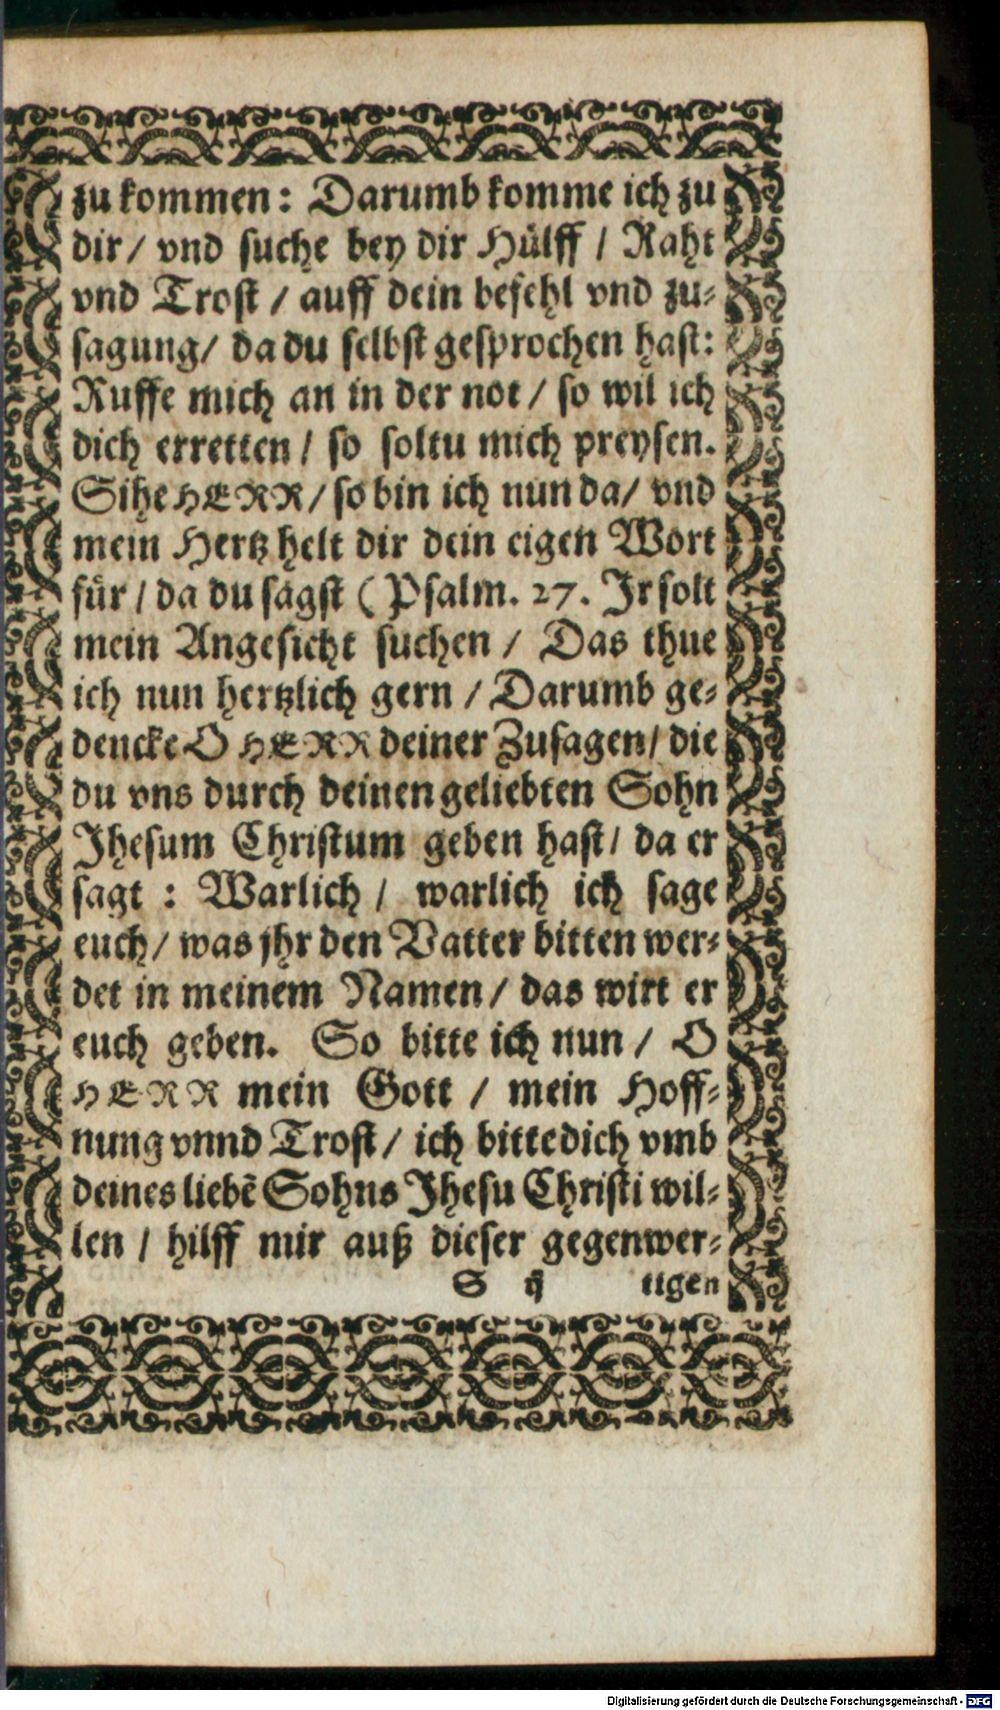 zu kommen: Darumb komme ich zu
dir / vnd suche bey dir Hülff / Raht
vnd Trost / auff dein befehl vnd zu-
sagung / da du selbst gesprochen hast:
Ruffe mich an in der not / so wil ich
dich erretten / so soltu mich preysen.
Sihe HERR / so bin ich nun da / vnd
mein Hertz helt dir dein eigen Wort
für / da du sagst (Psalm. 27. Jr solt
mein Angesicht suchen / Das thue
ich nun hertzlich gern / Darumb ge-
dencke O HERR deiner Zusagen / die
du vns durch deinen geliebten Sohn
Jhesum Christum geben hast / da er
sagt : Warlich / warlich ich sage
euch / was jhr den Vatter bitten wer-
det in meinem Namen / das wirt er
euch geben. So bitte ich nun / O
HERR mein Gott / mein Hoff-
nung vnnd Trost / ich bitte dich vmb
deines liebẽ Sohns Jhesu Christi wil-
len / hilff mir auß dieser gegenwer-
S ij tigen
Digitalisierung gefördert durch die Deutsche Forschungsgemeinschaft - DFG